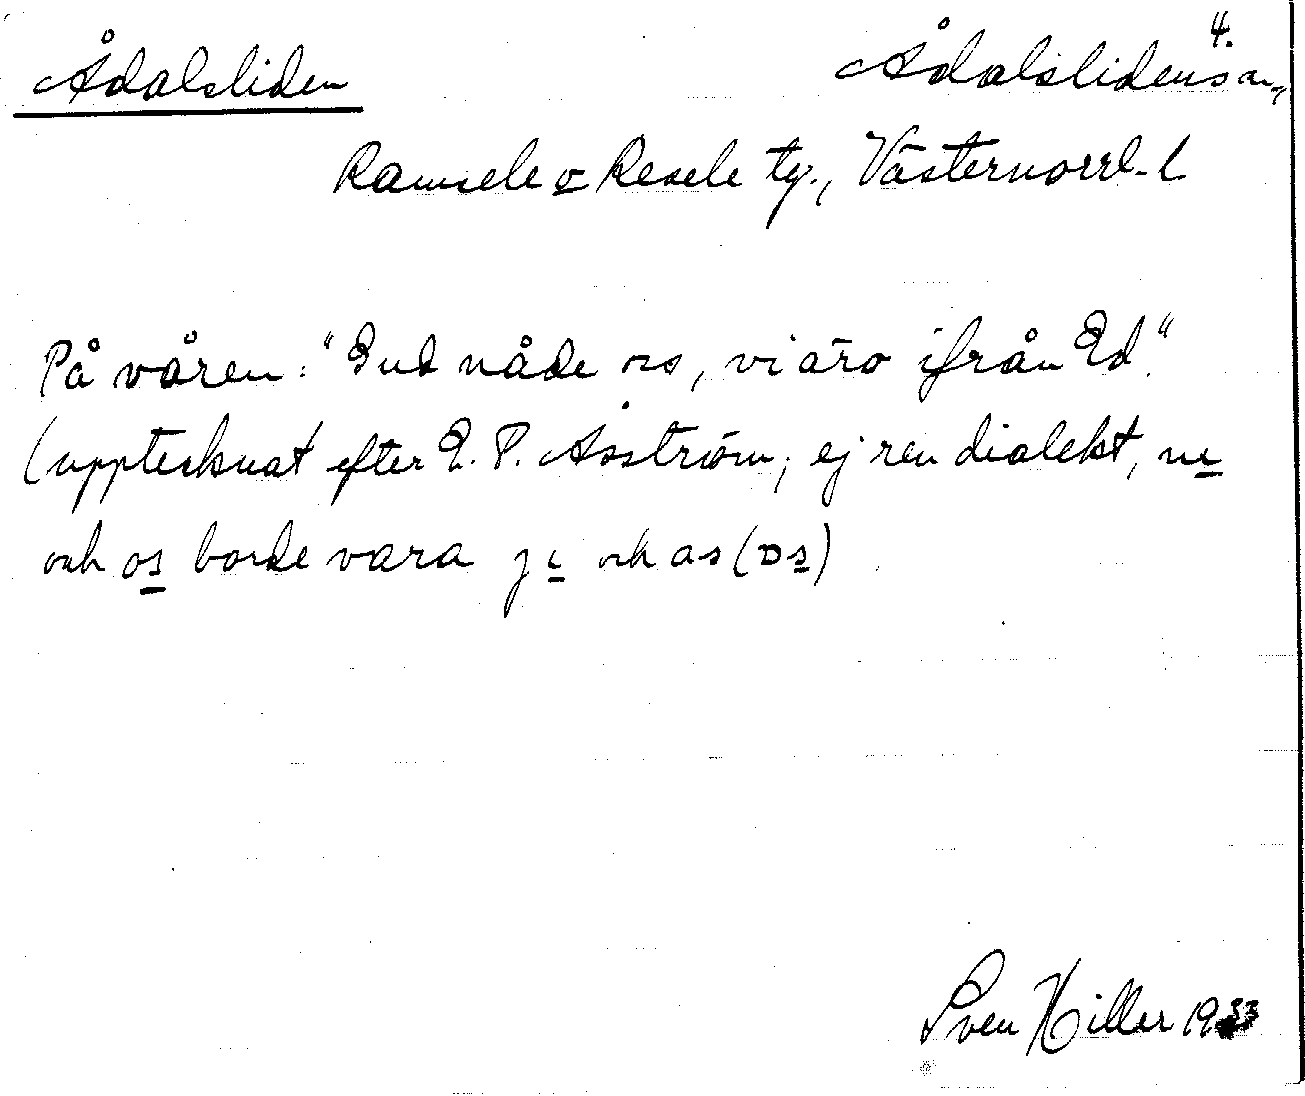 4.
Ådalsliden Ådalslidens sn.,
Ramsele o Resele tg., Västernorrl. l.
På våren: "Gud nåde oss, vi äro ifrån Ed".
(upptecknat efter E. P. Åsström; ej ren dialekt, vi
och os borde vara ji och as (os)
Sven Hiller 1933